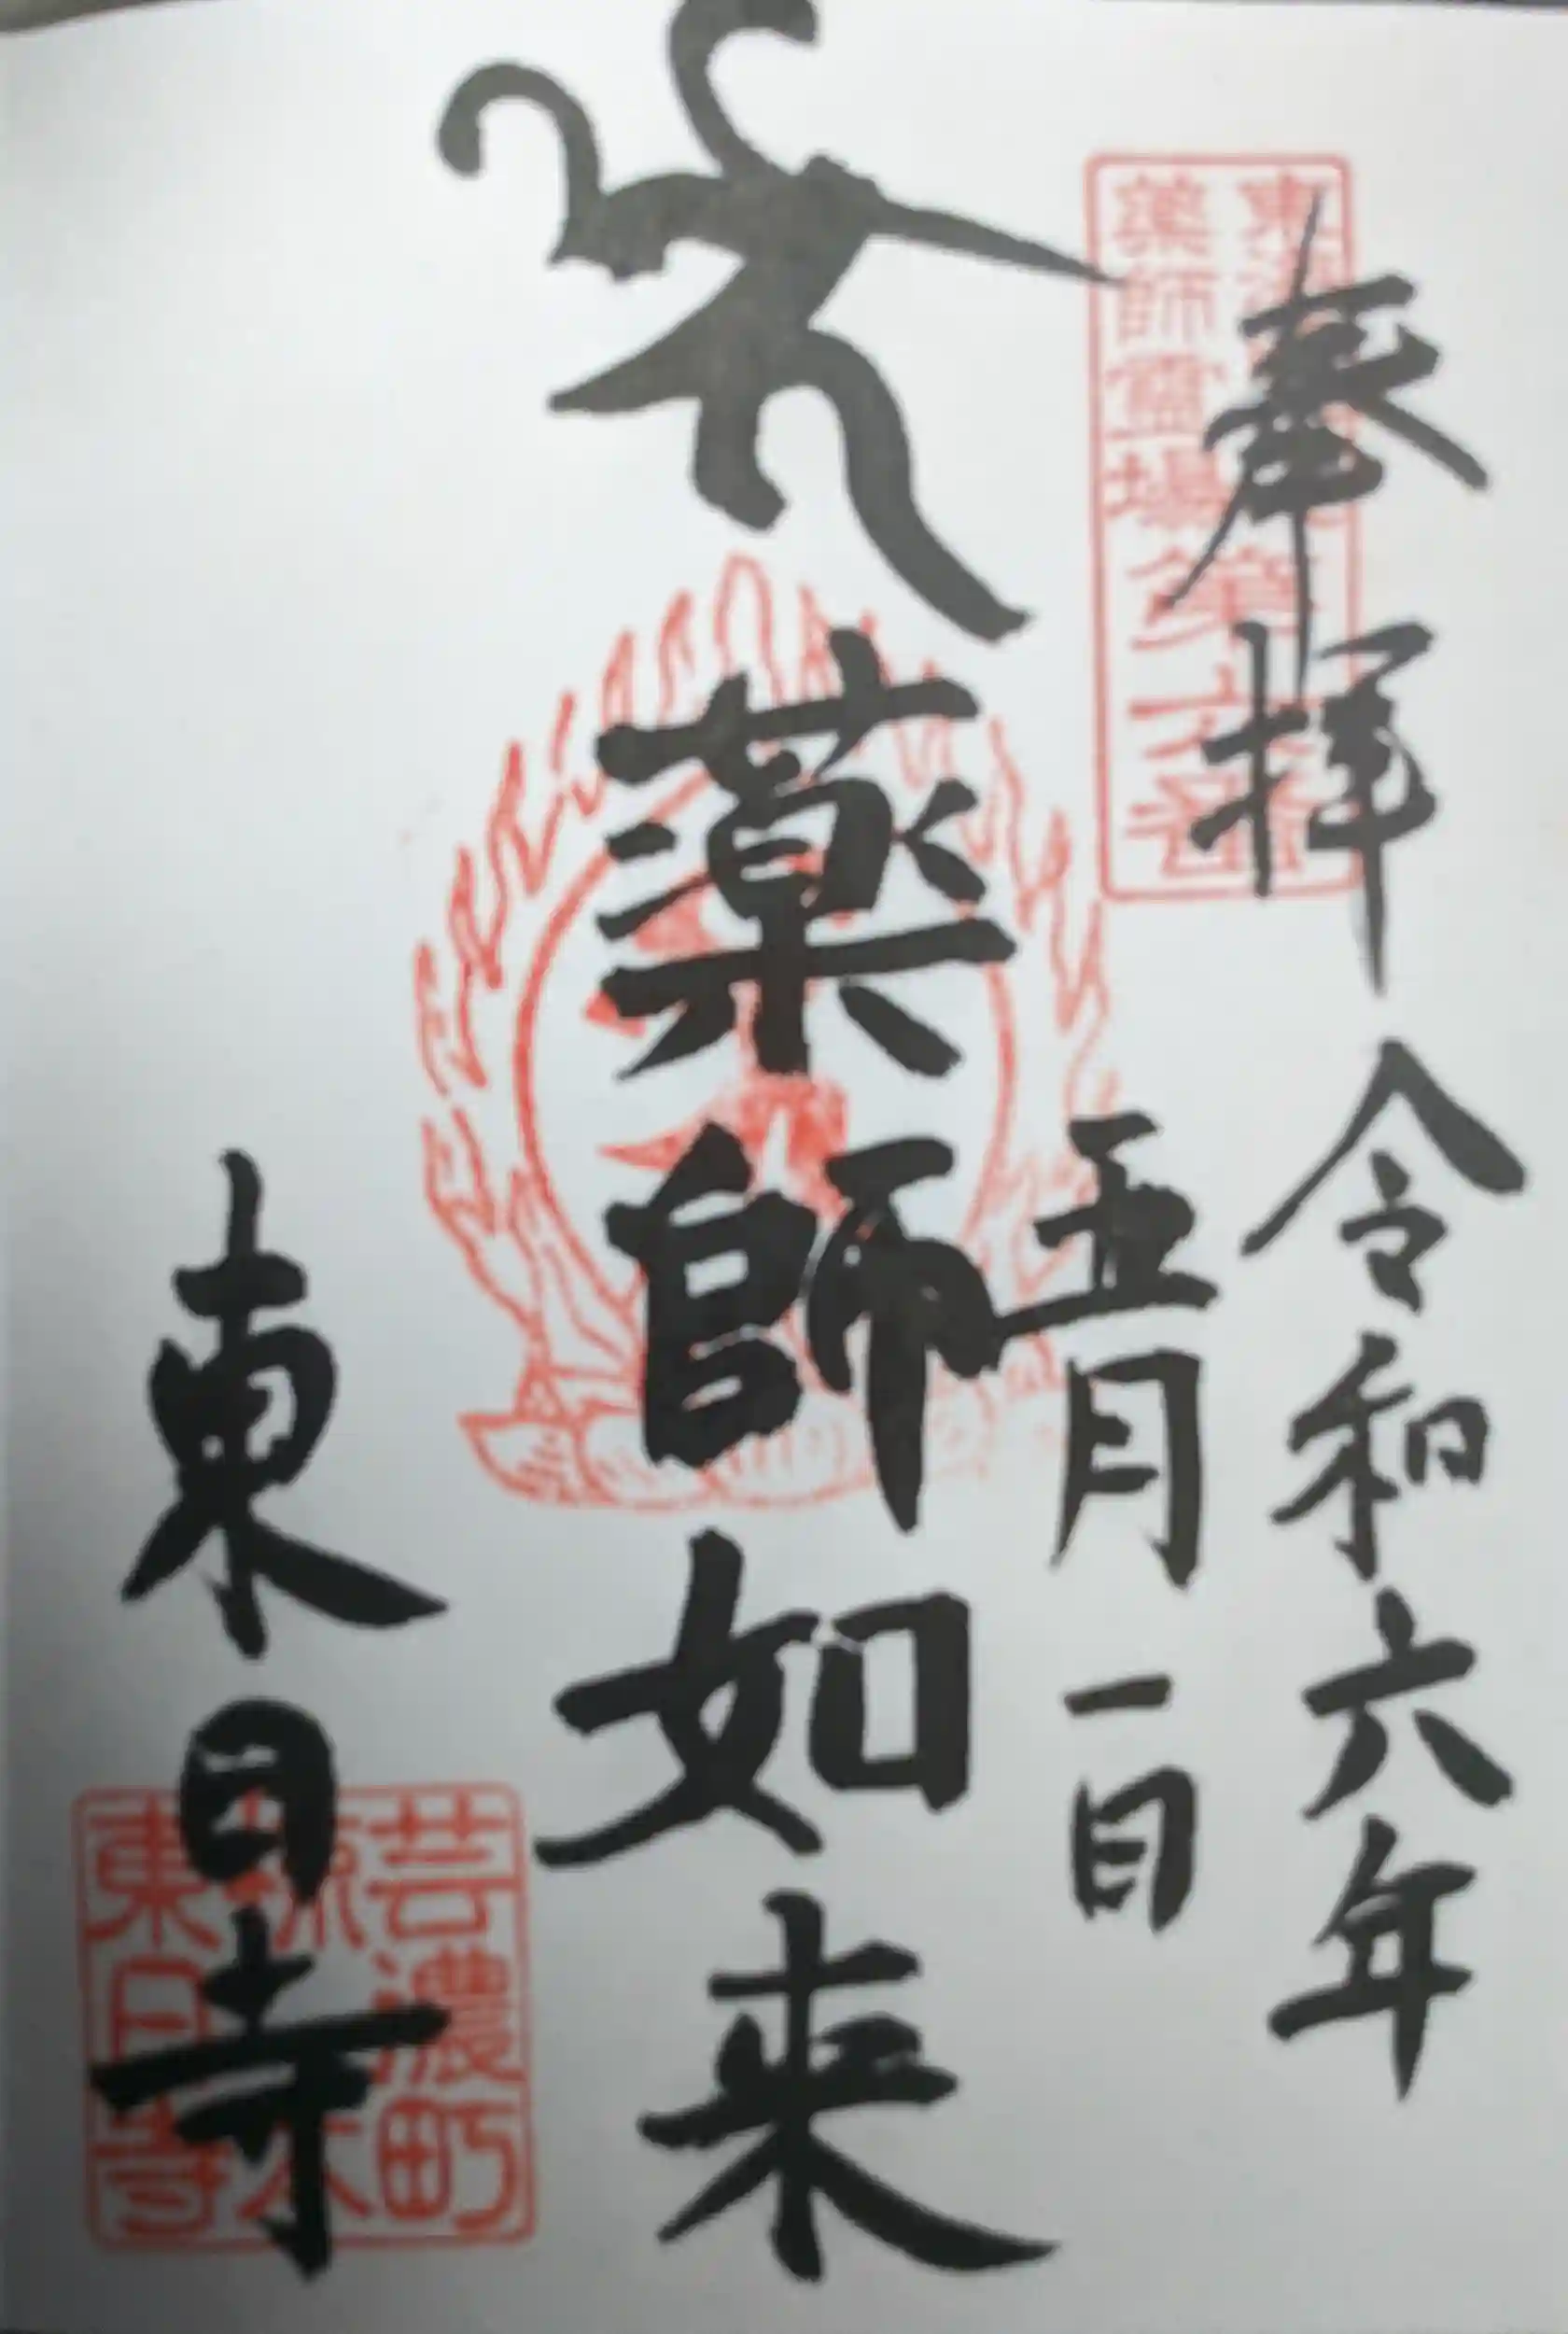 奉拝
令和六年
五月一日
薬師如来
東日寺
薬師霊場
芸濃町
東日寺